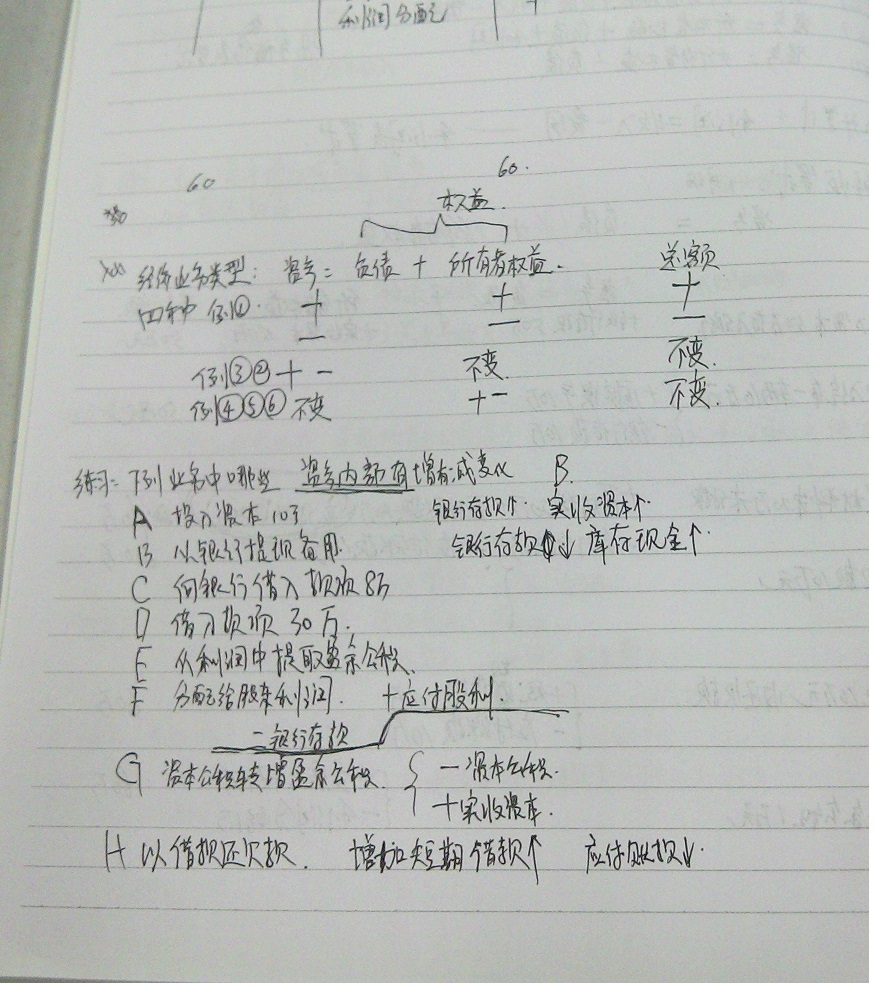 利润分配
60 60.
权益.
经济业务类型: 资产= 负债 + 所有者权益. 总额
四种 例① + + +
— — —
例③② + — 不变. 不变.
例④⑤⑥ 不变 + — 不变.
练习: 下列业务中哪些 资产内部有增有减变化 B.
A 投入资本10万 银行存款↑ 实收资本↑
B 从银行提现备用. 银行存款↓ 库存现金↑
C 向银行借入款项8万
D 借入款项30万.
E 从利润中提取盈余公积.
F 分配给股东利润. +应付股利.
—银行存款
G 资本公积转增盈余公积. { —资本公积.
+实收资本.
H 以借款还欠款. 增加短期借款↑ 应付账款↓.